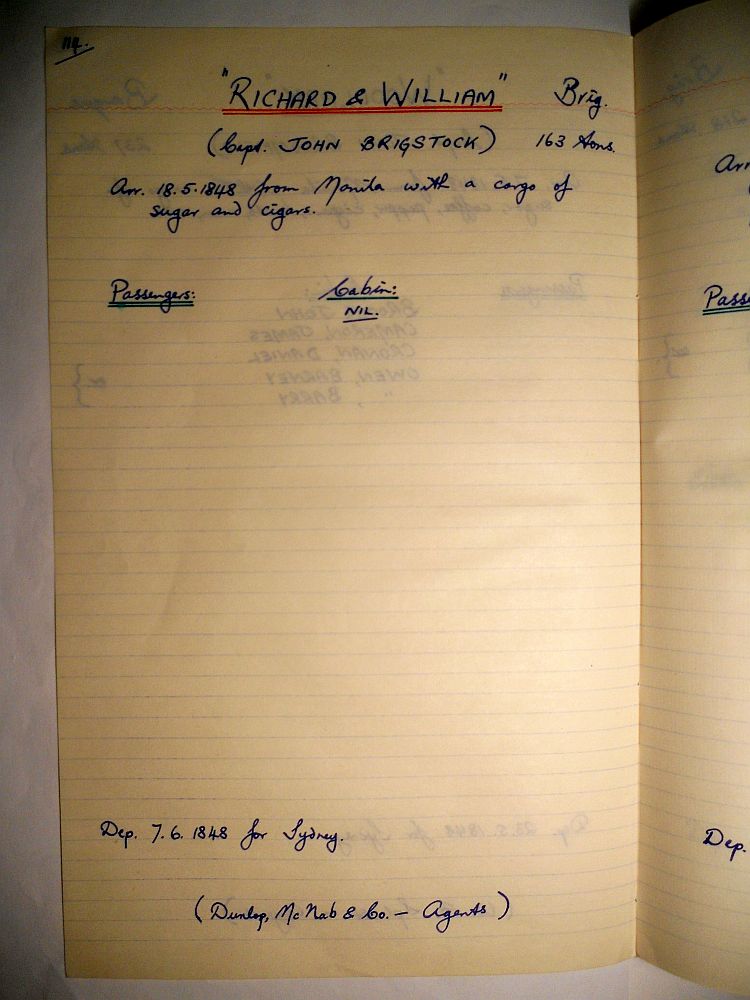 114.
"RICHARD & WILLIAM" Brig.
(Capt. JOHN BRIGSTOCK) 163 tons.
Arr. 18.5.1848 from Manila with a cargo of
sugar and cigars.
Passengers: Cabin:
NIL.
Dep. 7.6.1848 for Sydney.
(Dunlop, McNab & Co. — Agents)
Arr
Passe
Dep.